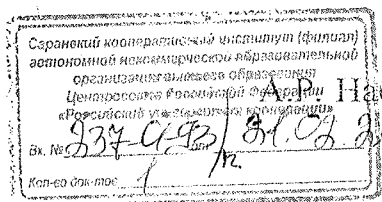 Саранский кооперативный институт (филиал)
автономной некоммерческой образовательной
организации высшего образования
Центросоюза Российской Федерации
«Российский университет кооперации»
А.Р. На
Вх. № 237-
21.02.2
Кол-во док-тов 1